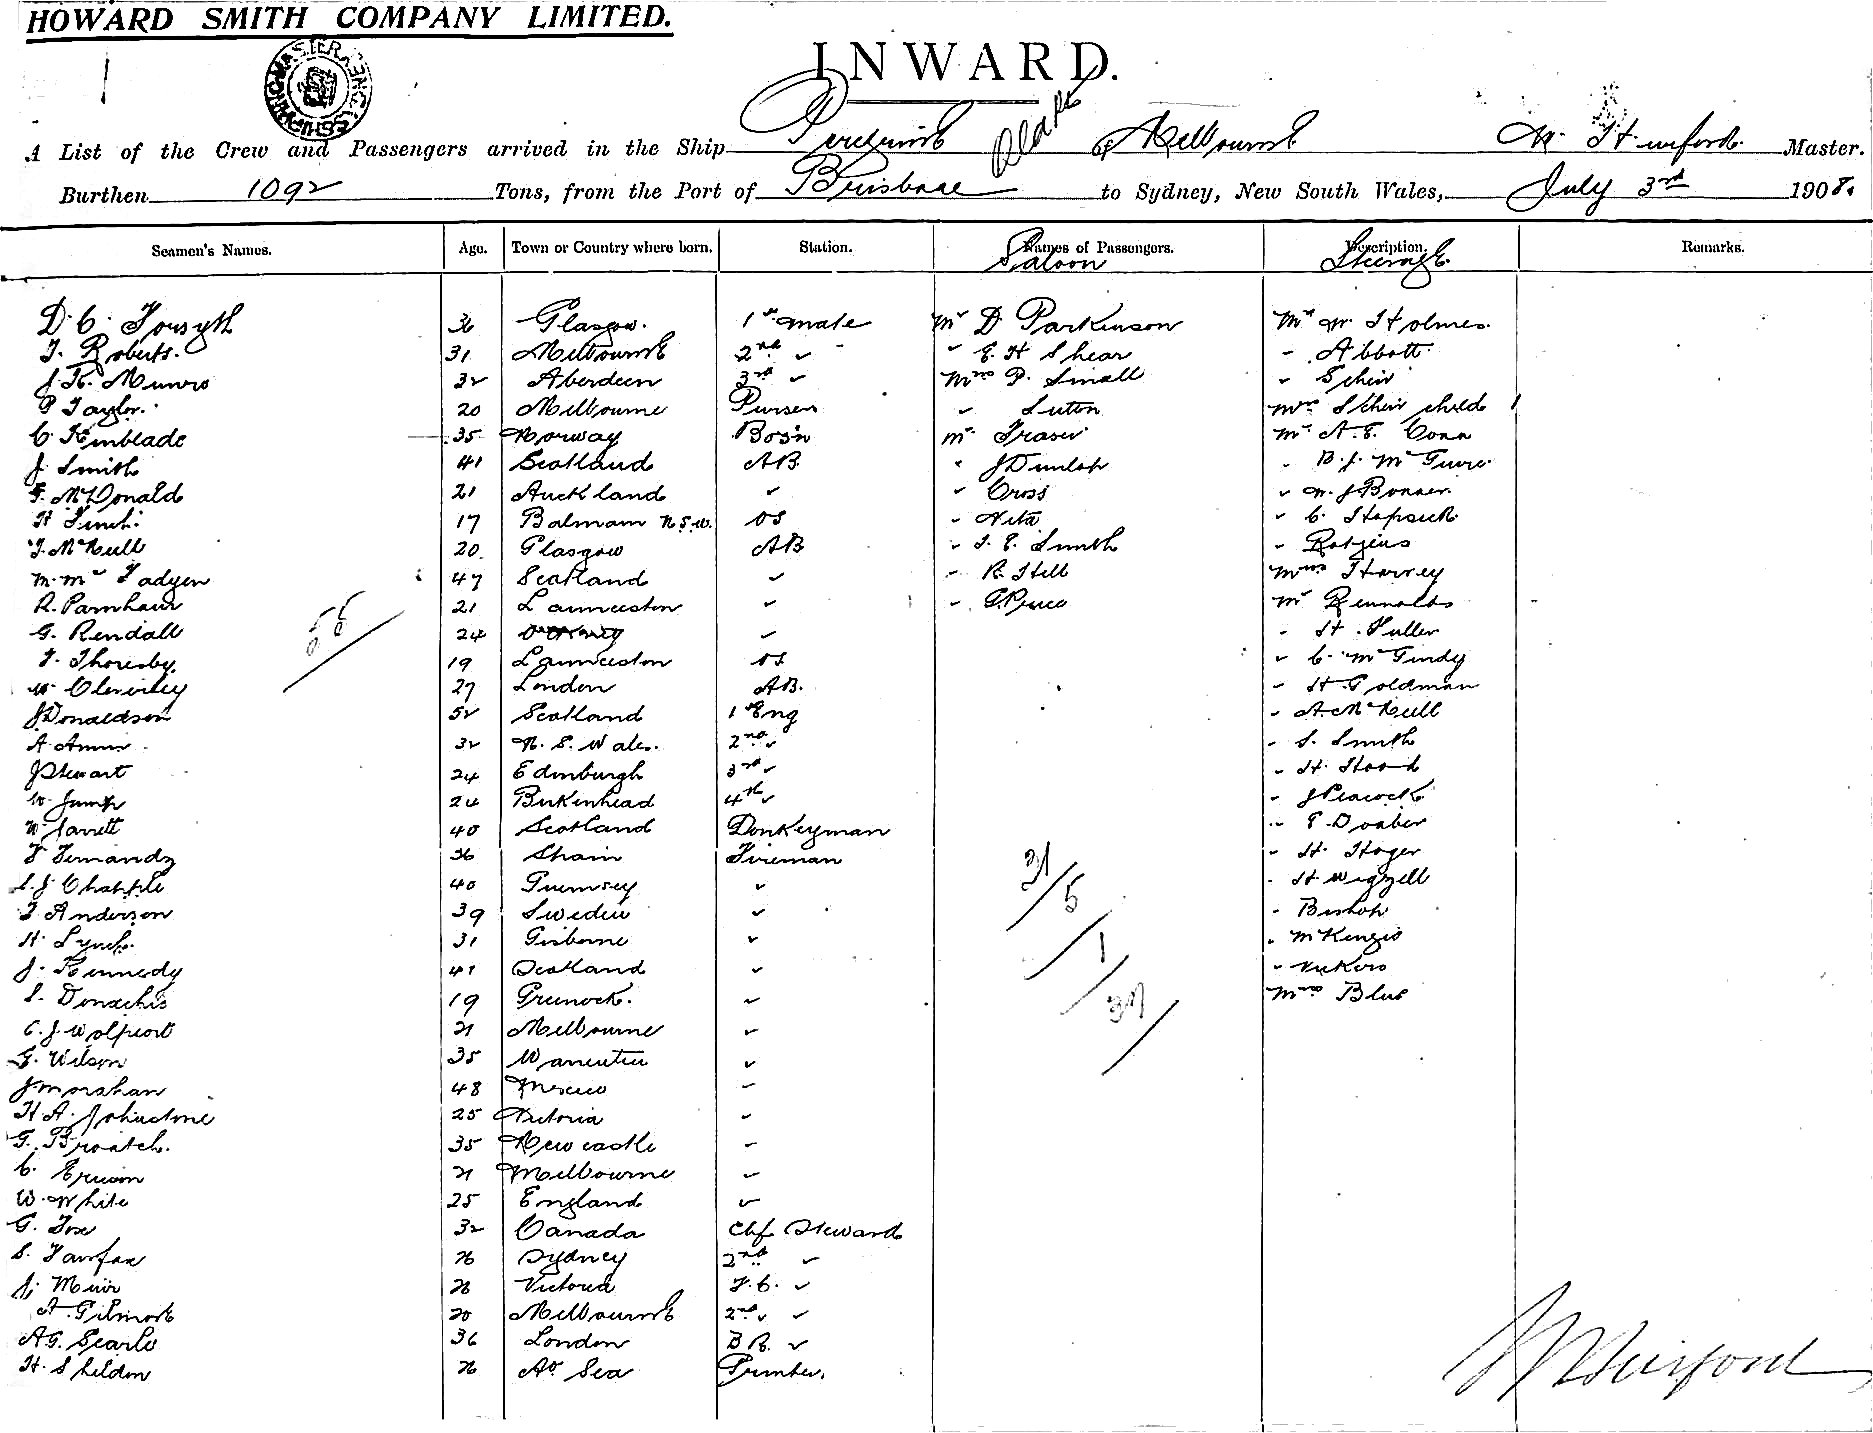 HOWARD SMITH COMPANY LIMITED.
INWARD.
A List of the Crew and Passengers arrived in the Ship Peregrine of Melbourne Master.
Burthen 1092 Tons, from the Port of Brisbane to Sydney, New South Wales, July 3rd 1908.
Seamen's Names. Age. Town or Country where born. Station. Names of Passengers. Description. Remarks.
Saloon Steerage
D. C. Forsyth 36 Glasgow. 1st mate Mr D Parkinson Mr W. Holmes.
T. Roberts. 31 Melbourne 2nd " " E H Shear " Abbott.
J. K. Munro 32 Aberdeen 3rd " Mrs P. Small "
P Taylor. 20 Melbourne Purser " Luton Mrs child 1
C. Kinblade 35 Norway Bos'n Mr Fraser Mr A. E. Conn
J Smith 41 Scotland AB " J Dunlop " B. J.
F. McDonald 21 Auckland " " Cross " W. J Bonner.
H Finch. 17 Balmain N.S.W. OS " " C.
T. McNeill 20. Glasgow AB " T. E. Smith "
M. McFadyen 47 Scotland " " R. Hill Mrs Harvey
R. Parnham 21 Launceston " " G. Mr Reynolds
G. Rendall 24 " " H. Fuller
T. Thoresby. 19 Launceston OS " C. McGindy
W. Cleverley 27 London AB. " H Goldman
J Donaldson 52 Scotland 1st Eng " A. McNeill
A 32 N. S. Wales. 2nd " " S. Smith
J Stewart 24 Edinburgh 3rd " " H. Hood
W. Jump 24 Birkenhead 4th " " J Peacock
W. Jarrett 40 Scotland Donkeyman "
F Fernandz 36 Spain Fireman " H. Hager
S. J Chapple 40 Guernsey " " H Wigzell
T Anderson 39 Sweden " " Bishop
H. Lynch. 31 Gisborne " " McKenzie
J. Kennedy 41 Scotland " " Vickers
S. Donachie 19 Greenock. " Mrs Blue
C. J. Wolfort 21 Melbourne "
G. Wilson 35 "
J Monahan 48 "
H A. Johnstone 25 Victoria "
G. Broatch. 35 Newcastle "
C. 21 Melbourne "
W. White 25 England "
G. Fox 32 Canada Chf Steward
S. Fairfax 26 Sydney 2nd "
J. Muir 26 Victoria F. C. "
A. Gilmore 20 Melbourne 2nd " "
A. G. Searle 36 London B R. "
H. Sheldon 26 At Sea Printer.
31/5
1
37